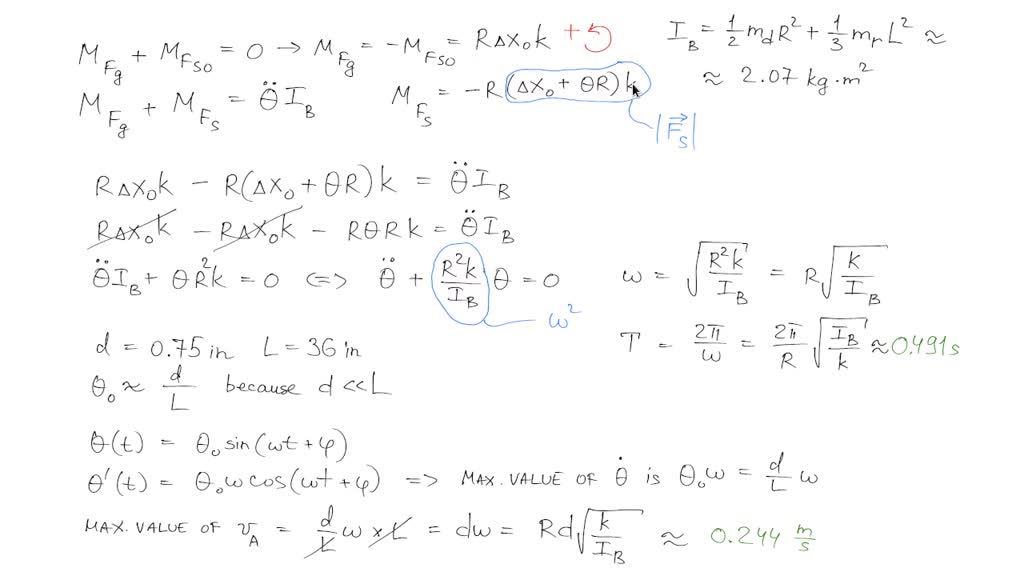 M_Fg + M_Fso = 0 → M_Fg = -M_Fso = RΔx₀k +↺
M_Fg + M_Fs = θ̈ I_B    M_Fs = -R(Δx₀ + θR)k
|F⃗_s|
I_B = 1/2 m_d R² + 1/3 m_r L² ≈
≈ 2.07 kg·m²
RΔx₀k - R(Δx₀ + θR)k = θ̈ I_B
RΔx₀k - RΔx₀k - RθRk = θ̈ I_B
θ̈ I_B + θR²k = 0 <=> θ̈ + R²k/I_B θ = 0
ω²
ω = √(R²k/I_B) = R√(k/I_B)
T = 2π/ω = 2π/R √(I_B/k) ≈ 0.491 s
d = 0.75 in   L = 36 in
θ₀ ≈ d/L because d << L
θ(t) = θ₀ sin(ωt + φ)
θ'(t) = θ₀ω cos(ωt + φ) => MAX. VALUE OF θ̇ is θ₀ω = d/L ω
MAX. VALUE OF v_A = d/L ω × L = dω = Rd√(k/I_B) ≈ 0.244 m/s